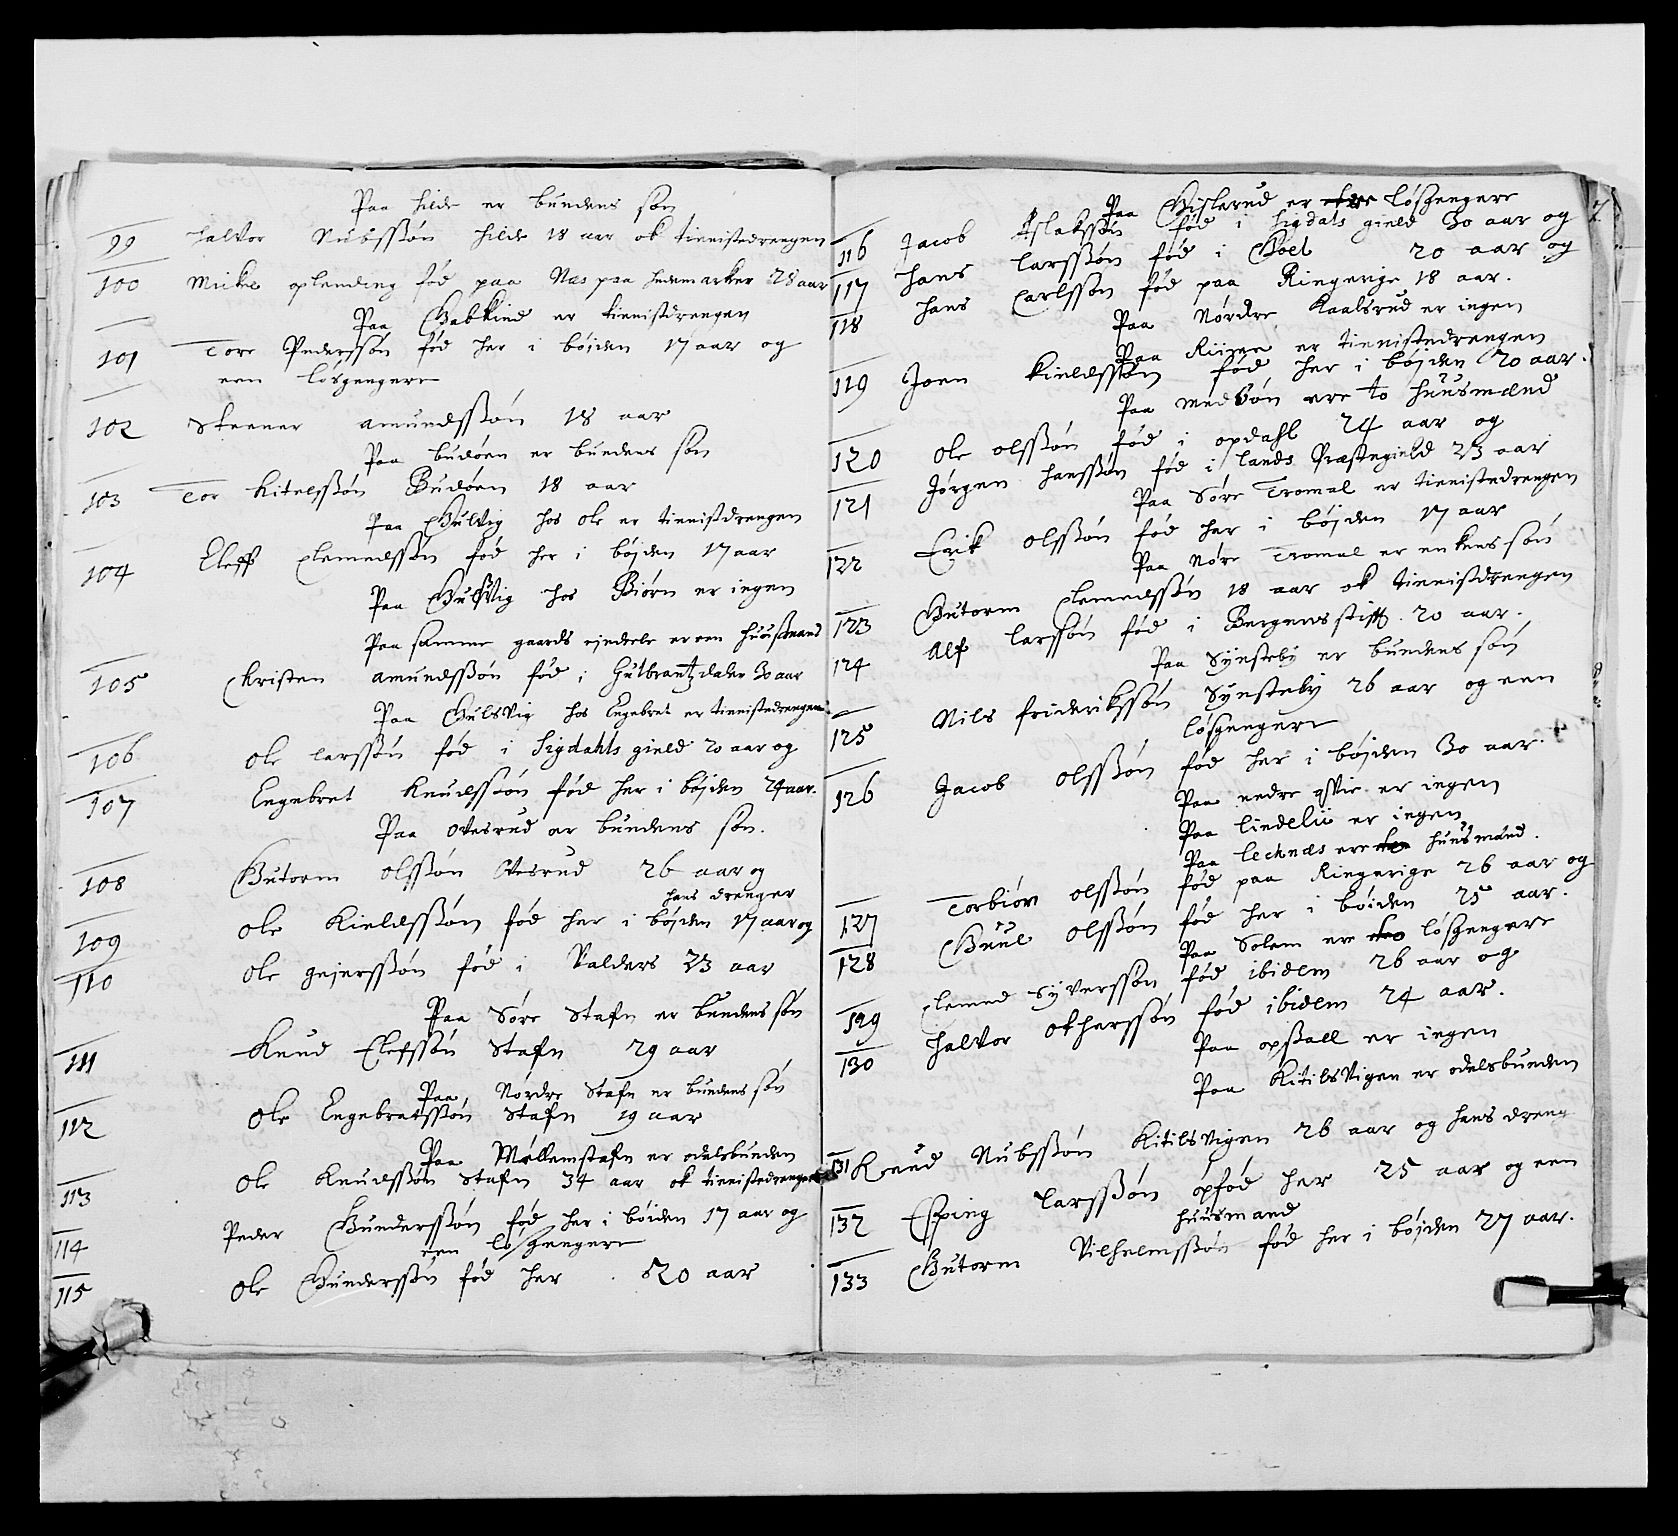 Paa hilde er bundens søn
99 halvor Nubssøn hilde 18 aar ok tienistedrengen
100 Micke oplending fød paa Nes paa hedemarker 28 aar
Paa Gabkind er tienistdrengen
101 Tore Pederssøn fød her i böjden 17 aar og
een losgenger
102 Steener amundssøn 18 aar
Paa budøen er bundens søn
103 Tor Kitelssøn Budøen 18 aar
Paa Gulvig hos ole er tienistdrengen
104 Eleff Clemedssøn fød her i böjden 17 aar
Paa Gulsvig hos Biørn er ingen
Paa samme gaards ejndeele er een huusmans
105 Christen amundssøn fød i Gulbrantzdaler 30 aar
Paa Gulsvig hos Engebret er tienistedrengen
106 ole larssøn fød i Sigdahls gield 20 aar og
107 Engebret Knudssøn fød her i böjden 24 aar.
Paa Ovesrud er bundens søn.
108 Gutorm olssøn Ovesrud 26 aar og
hans drenger
109 ole Kieldssøn fød her i böjden 17 aar og
110 ole gejerssøn fød i Valders 23 aar
Paa Søre Stafn er bundens søn
111 Knud Elefssøn Stafn 29 aar
Paa Nordre Stafn er bundens søn
112 ole Engebretssøn Stafn 19 aar
Paa Mellemstafn er odelsbunden
113 ole Knudssøn Stafn 34 aar ok tienistedrengen
114 Peder Gunderssøn fød her i böjden 17 aar og
een losgenger
115 ole Gunderssøn fød her 20 aar
Paa Gislerud er tre løsgengere
116 Jacob Aslakssøn fød i Sigdals gield 30 aar og
117 hans larssøn fød i Goel 20 aar og
118 hans Carlssøn fød paa Ringerige 18 aar.
Paa Nørdre Kaalsrud er ingen
Paa Riiser er tienistedrengen
119 Joen Kieldssøn fød her i böjden 20 aar.
Paa medbøn ere to huusmænd
120 ole olssøn fød i opdahl 24 aar og
121 Jørgen hanssøn fød i lands Præstegield 23 aar
Paa Søre Tromal er tienistedrengen
122 Erik olssøn fød her i böjden 17 aar
Paa Nøre Tromal er enkens søn
123 Gutorm Clemedssøn 18 aar ok tienistdrengen
124 Alf larssøn fød i Bergens stift 20 aar.
Paa Synsteby er bundens søn
125 Nils friderikssøn Synsteby 26 aar og een
løsgenger
126 Jacob olssøn fød her i böjden 30 aar.
Paa nedre er ingen
Paa lindelii er ingen
Paa lecknæs ere to huusmænd.
127 Torbiørn olssøn fød paa Ringerige 26 aar og
128 Guul olssøn fød her i böiden 25 aar.
Paa Solem ere to løsgengere
129 Clemed Syverssøn fød ibidem 26 aar og
130 halvor otherssøn fød ibidem 24 aar.
Paa opsall er ingen
Paa Kitilsvigen er odelsbunden
131 Knud Nubssøn Kitilsvigen 26 aar og hans dreng
132 Esping larssøn opfød her 25 aar og een
huusmand
133 Gutorm Vilhelmssøn fød her i böjden 27 aar.